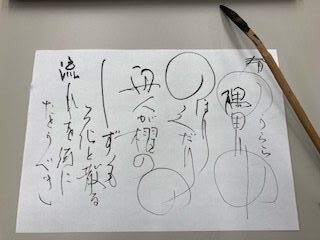 春のうららの
隅田川
のぼりくだりの
舟人が櫂の
しずくも
花と散る
流れを何に
たとうべき